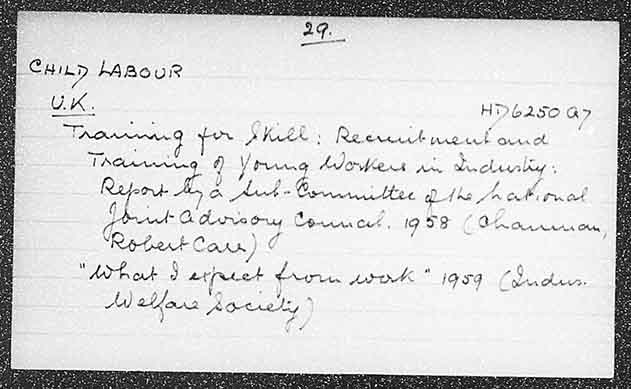 29.
CHILD LABOUR
U.K.
HD6250 Q7
Training for Skill: Recruitment and
Training of Young Workers in Industry:
Report by a Sub-Committee of the National
Joint Advisory Council. 1958 (Chairman,
Robert Carr)
"What I expect from work" 1959 (Indus.
Welfare Society)